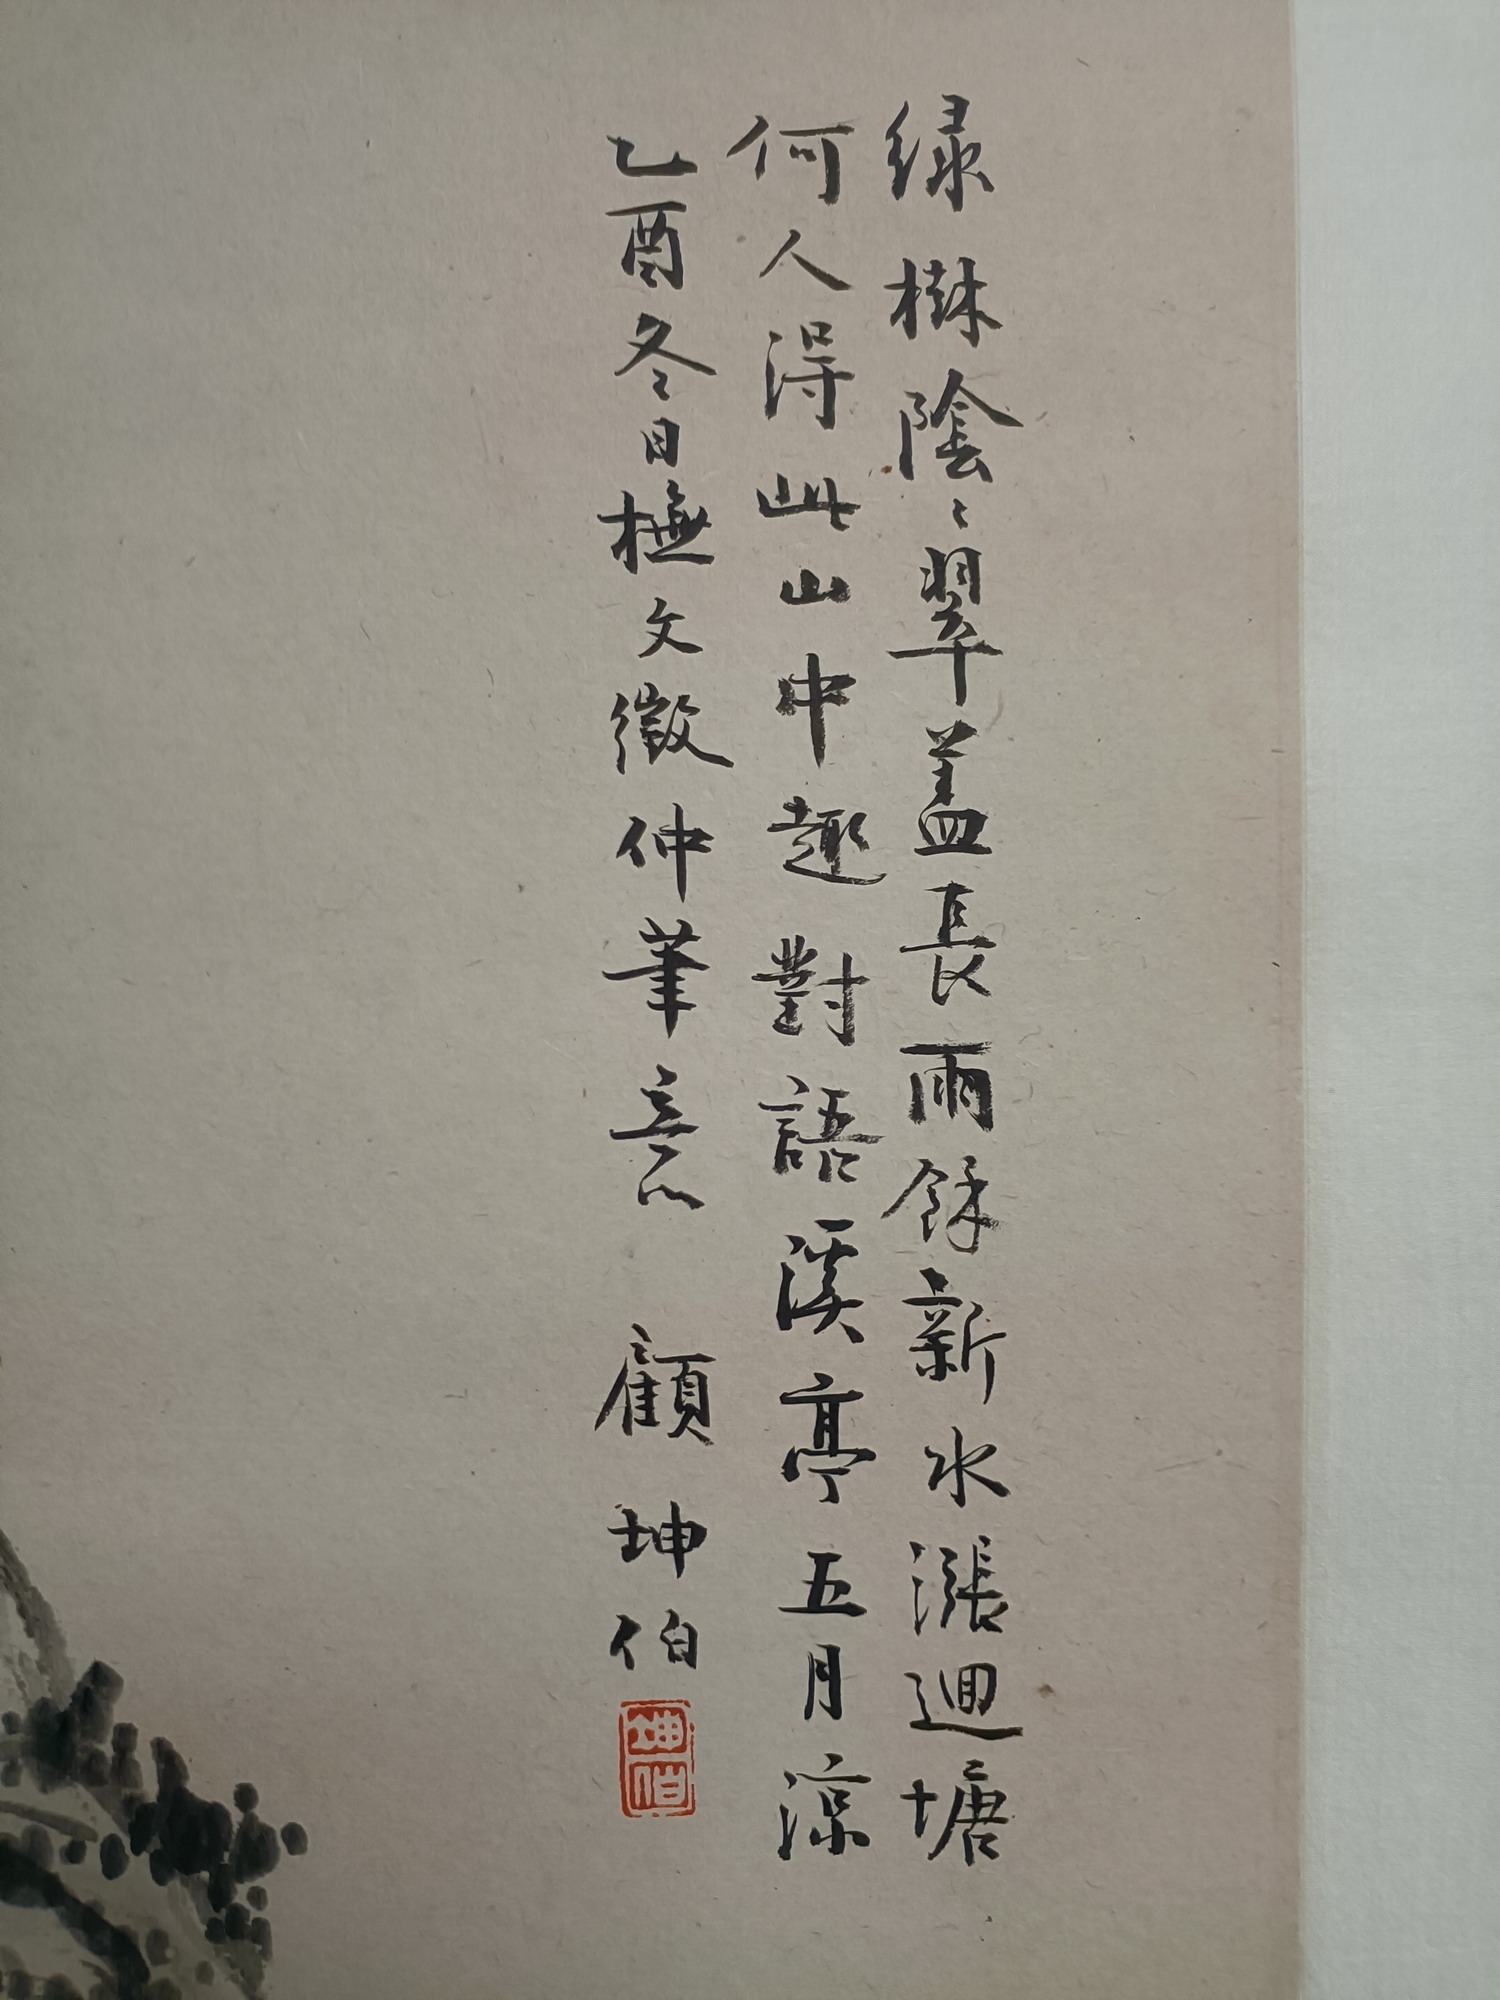 绿樹陰〻翠蓋長雨餘新水漲迴塘
何人得此山中趣對語溪亭五月涼
乙酉冬日橅文徵仲筆意 顧坤伯
坤伯